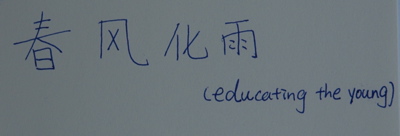 春风化雨
(educating the young)